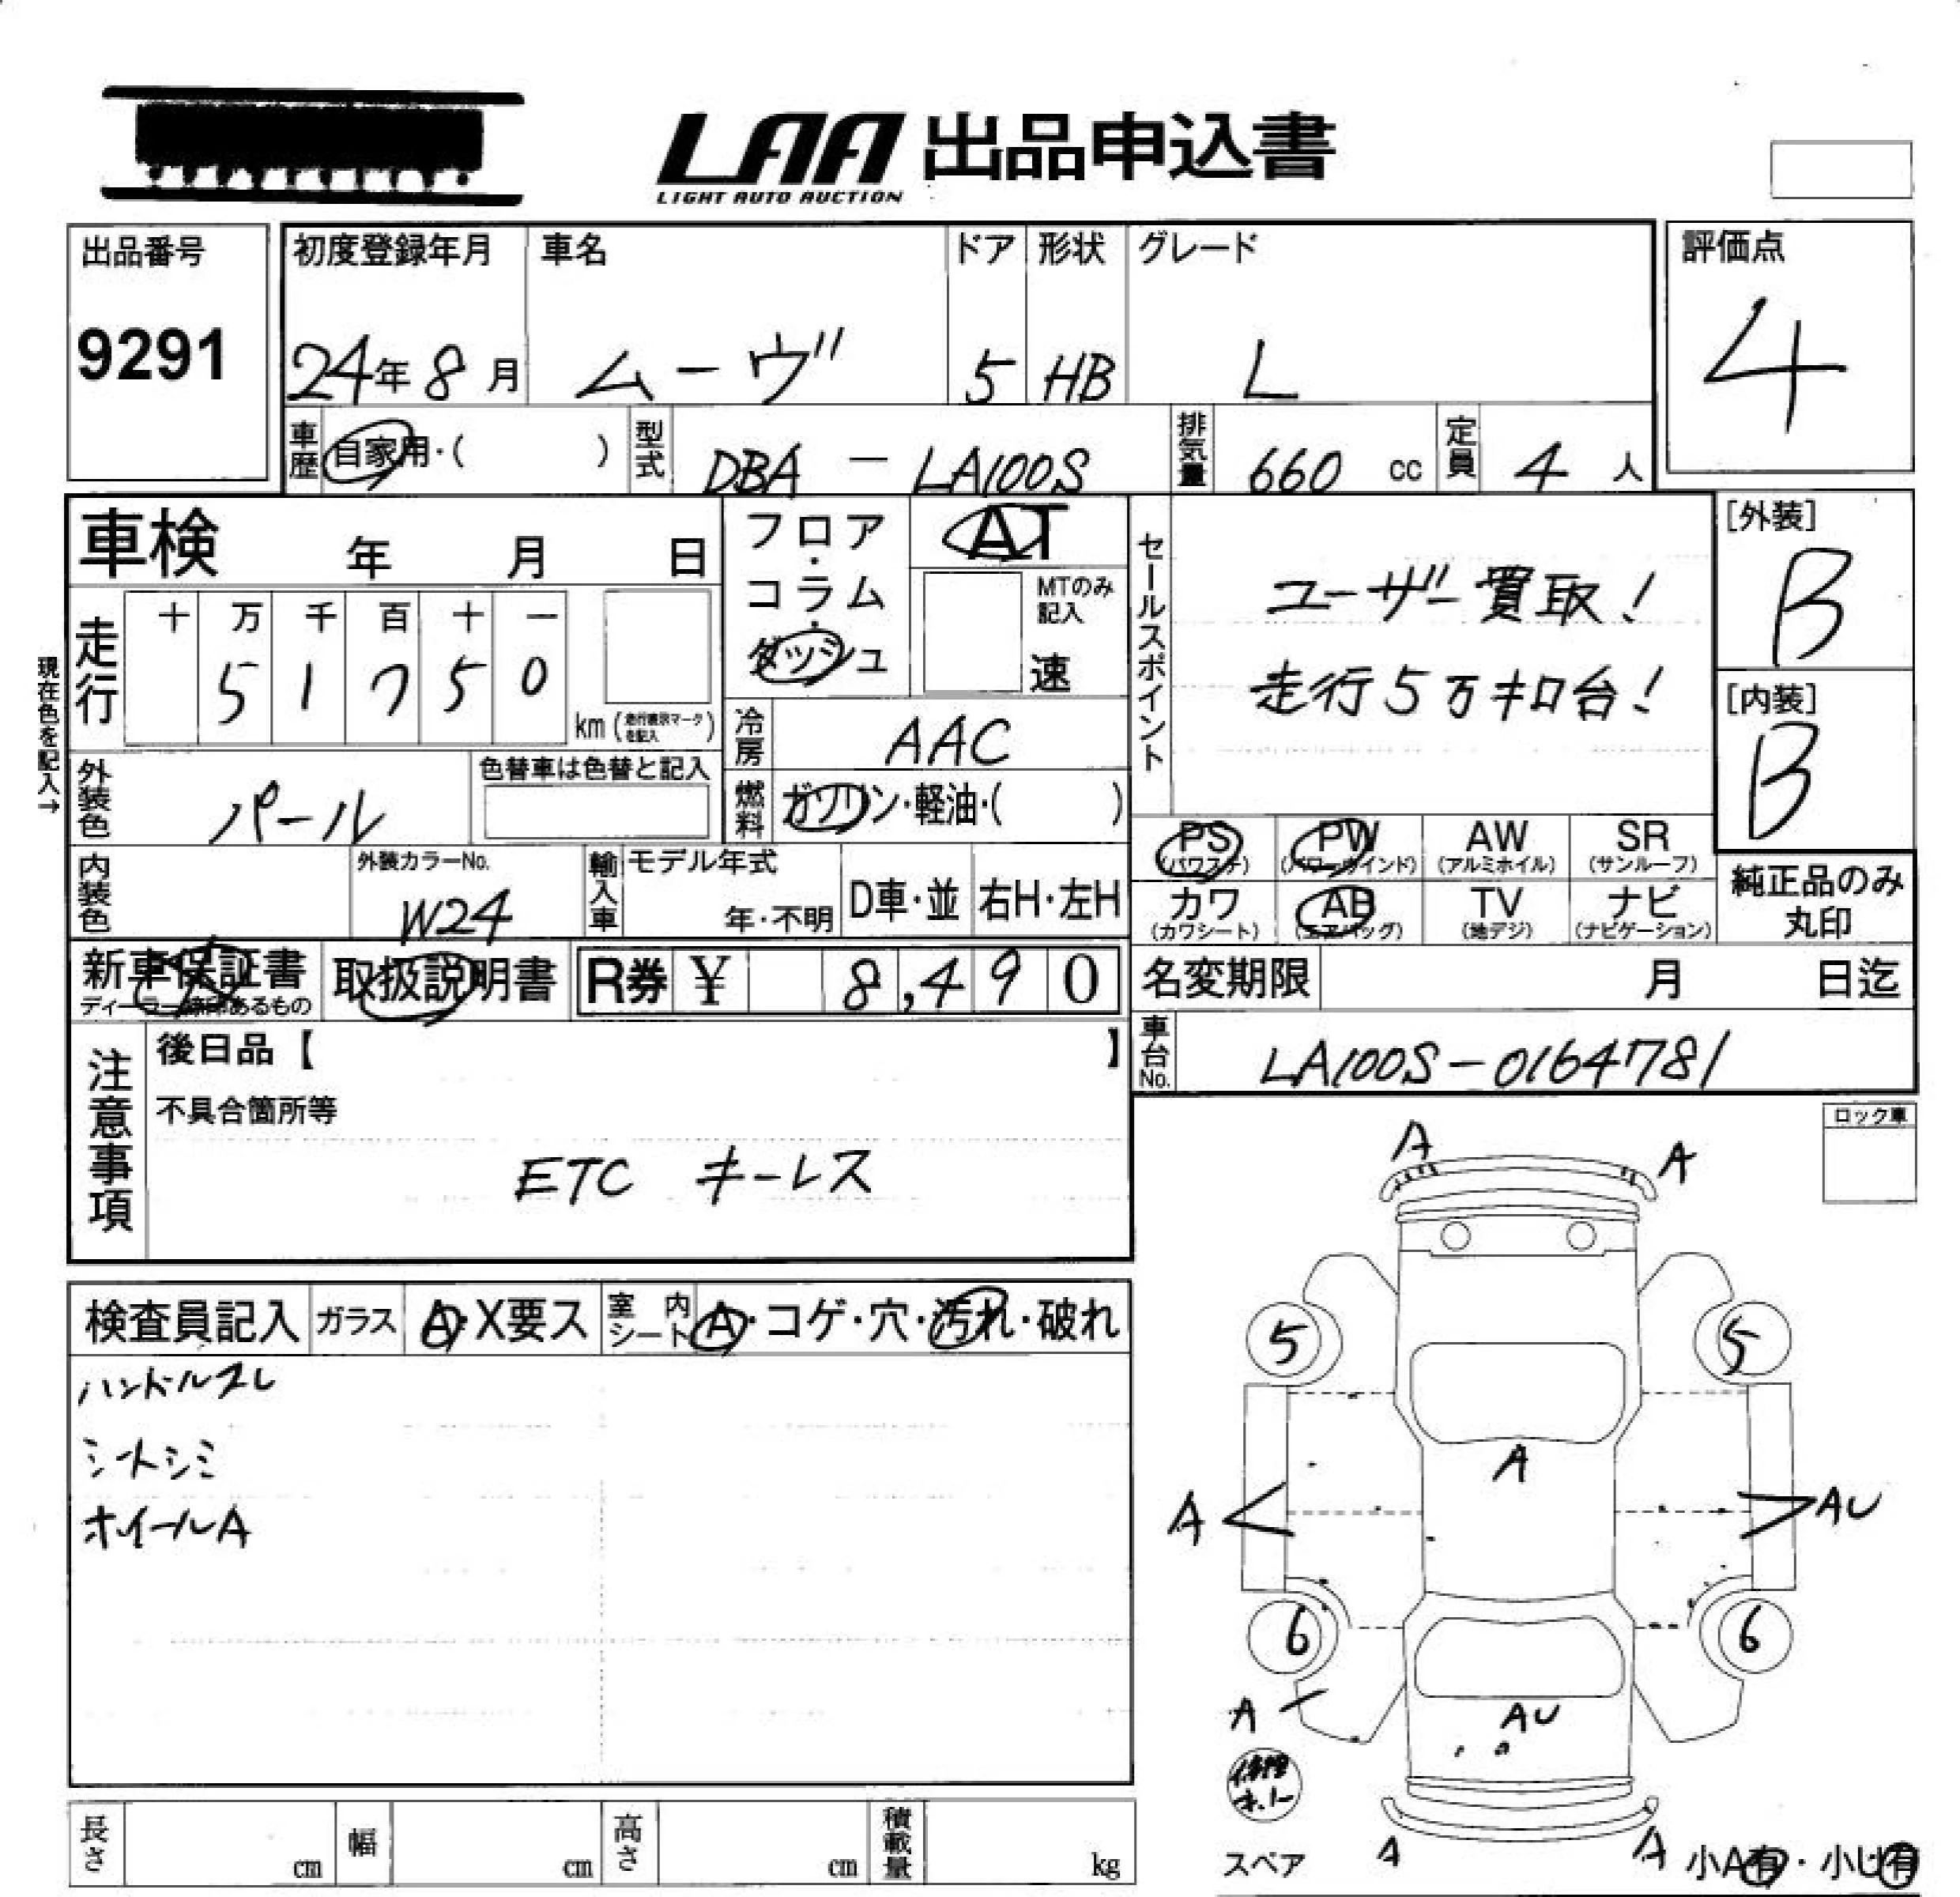 LAA 出品申込書
LIGHT AUTO AUCTION
出品番号 初度登録年月 車名 ドア 形状 グレード 評価点
9291 24年 8月 ムーヴ 5 HB L 4
車歴 自家用・( ) 型式 DBA - LA100S 排気量 660 cc 定員 4 人
車検 年 月 日
フロア・コラム・ダッシュ AT
MTのみ記入 速
セールスポイント
ユーザー買取!
走行5万キロ台!
[外装] B
[内装] B
現在色を記入→
走行 十 万 千 百 十 一
5 1 7 5 0
km (走行表示マークを記入)
冷房 AAC
外装色 パール 色替車は色替と記入
燃料 ガソリン・軽油・( )
PS (パワステ) PW (パワーウインド) AW (アルミホイル) SR (サンルーフ)
内装色 外装カラーNo. W24 輸入車 モデル年式 年・不明 D車・並 右H・左H
カワ (カワシート) AB (エアバッグ) TV (地デジ) ナビ (ナビゲーション)
純正品のみ丸印
新車保証書 取扱説明書 R券 ¥ 8,490
名変期限 月 日迄
車台No. LA100S-0164781
注意事項 後日品【 】
不具合箇所等
ETC キーレス
ロック車
検査員記入 ガラス A・X要ス 室内シート A・コゲ・穴・汚れ・破れ
ハンドルスレ
シートシミ
ホイールA
A A
5 5
A
A AU
6 6
A AU
スペア A A 小A有・小U有
長さ cm 幅 cm 高さ cm 積載量 kg